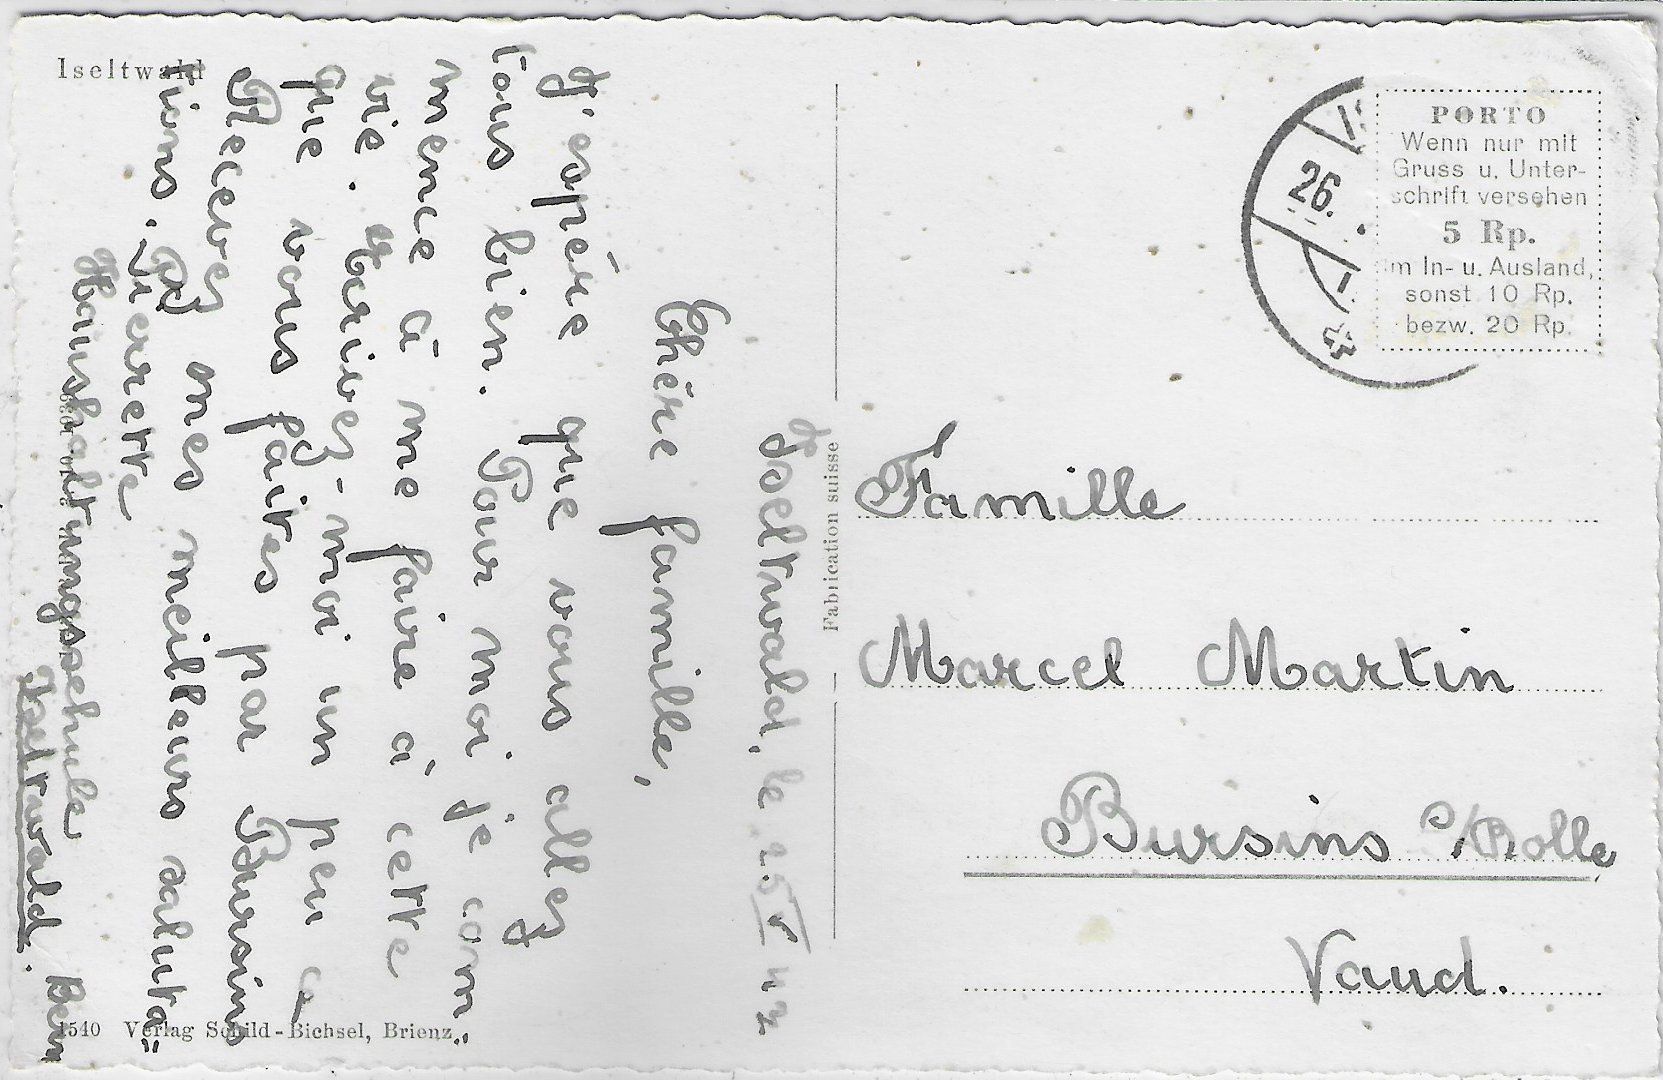 Iseltwald
Iseltwald, le 25 V 42
Chère famille,
J'espère que vous allez
tous bien. Pour moi je com„
mence à me faire à cette
vie. Ecrivez-moi un peu ce
que vous faites par Bursins
Recevez mes meilleurs saluta„
tions.
Pierrette
Haushaltungsschule
Iseltwald. Bern
1540 Verlag Schild-Bichsel, Brienz
Fabrication suisse
26.
PORTO
Wenn nur mit
Gruss u. Unter-
schrift versehen
5 Rp.
im In- u. Ausland,
sonst 10 Rp.
bezw. 20 Rp.
Famille
Marcel Martin
Bursins s/Rolle
Vaud.